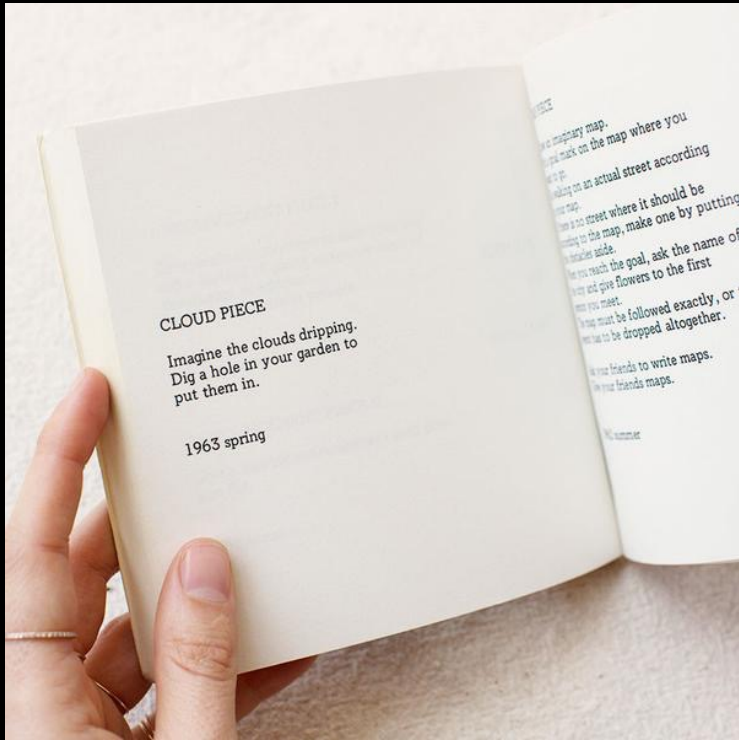 CLOUD PIECE
Imagine the clouds dripping.
Dig a hole in your garden to
put them in.
1963 spring
PIECE
imaginary map.
mark on the map where you
to go.
walking on an actual street according
map.
is no street where it should be
to the map, make one by putting
obstacles aside.
you reach the goal, ask the name of
city and give flowers to the first
you meet.
map must be followed exactly, or
has to be dropped altogether.
your friends to write maps.
your friends maps.
summer